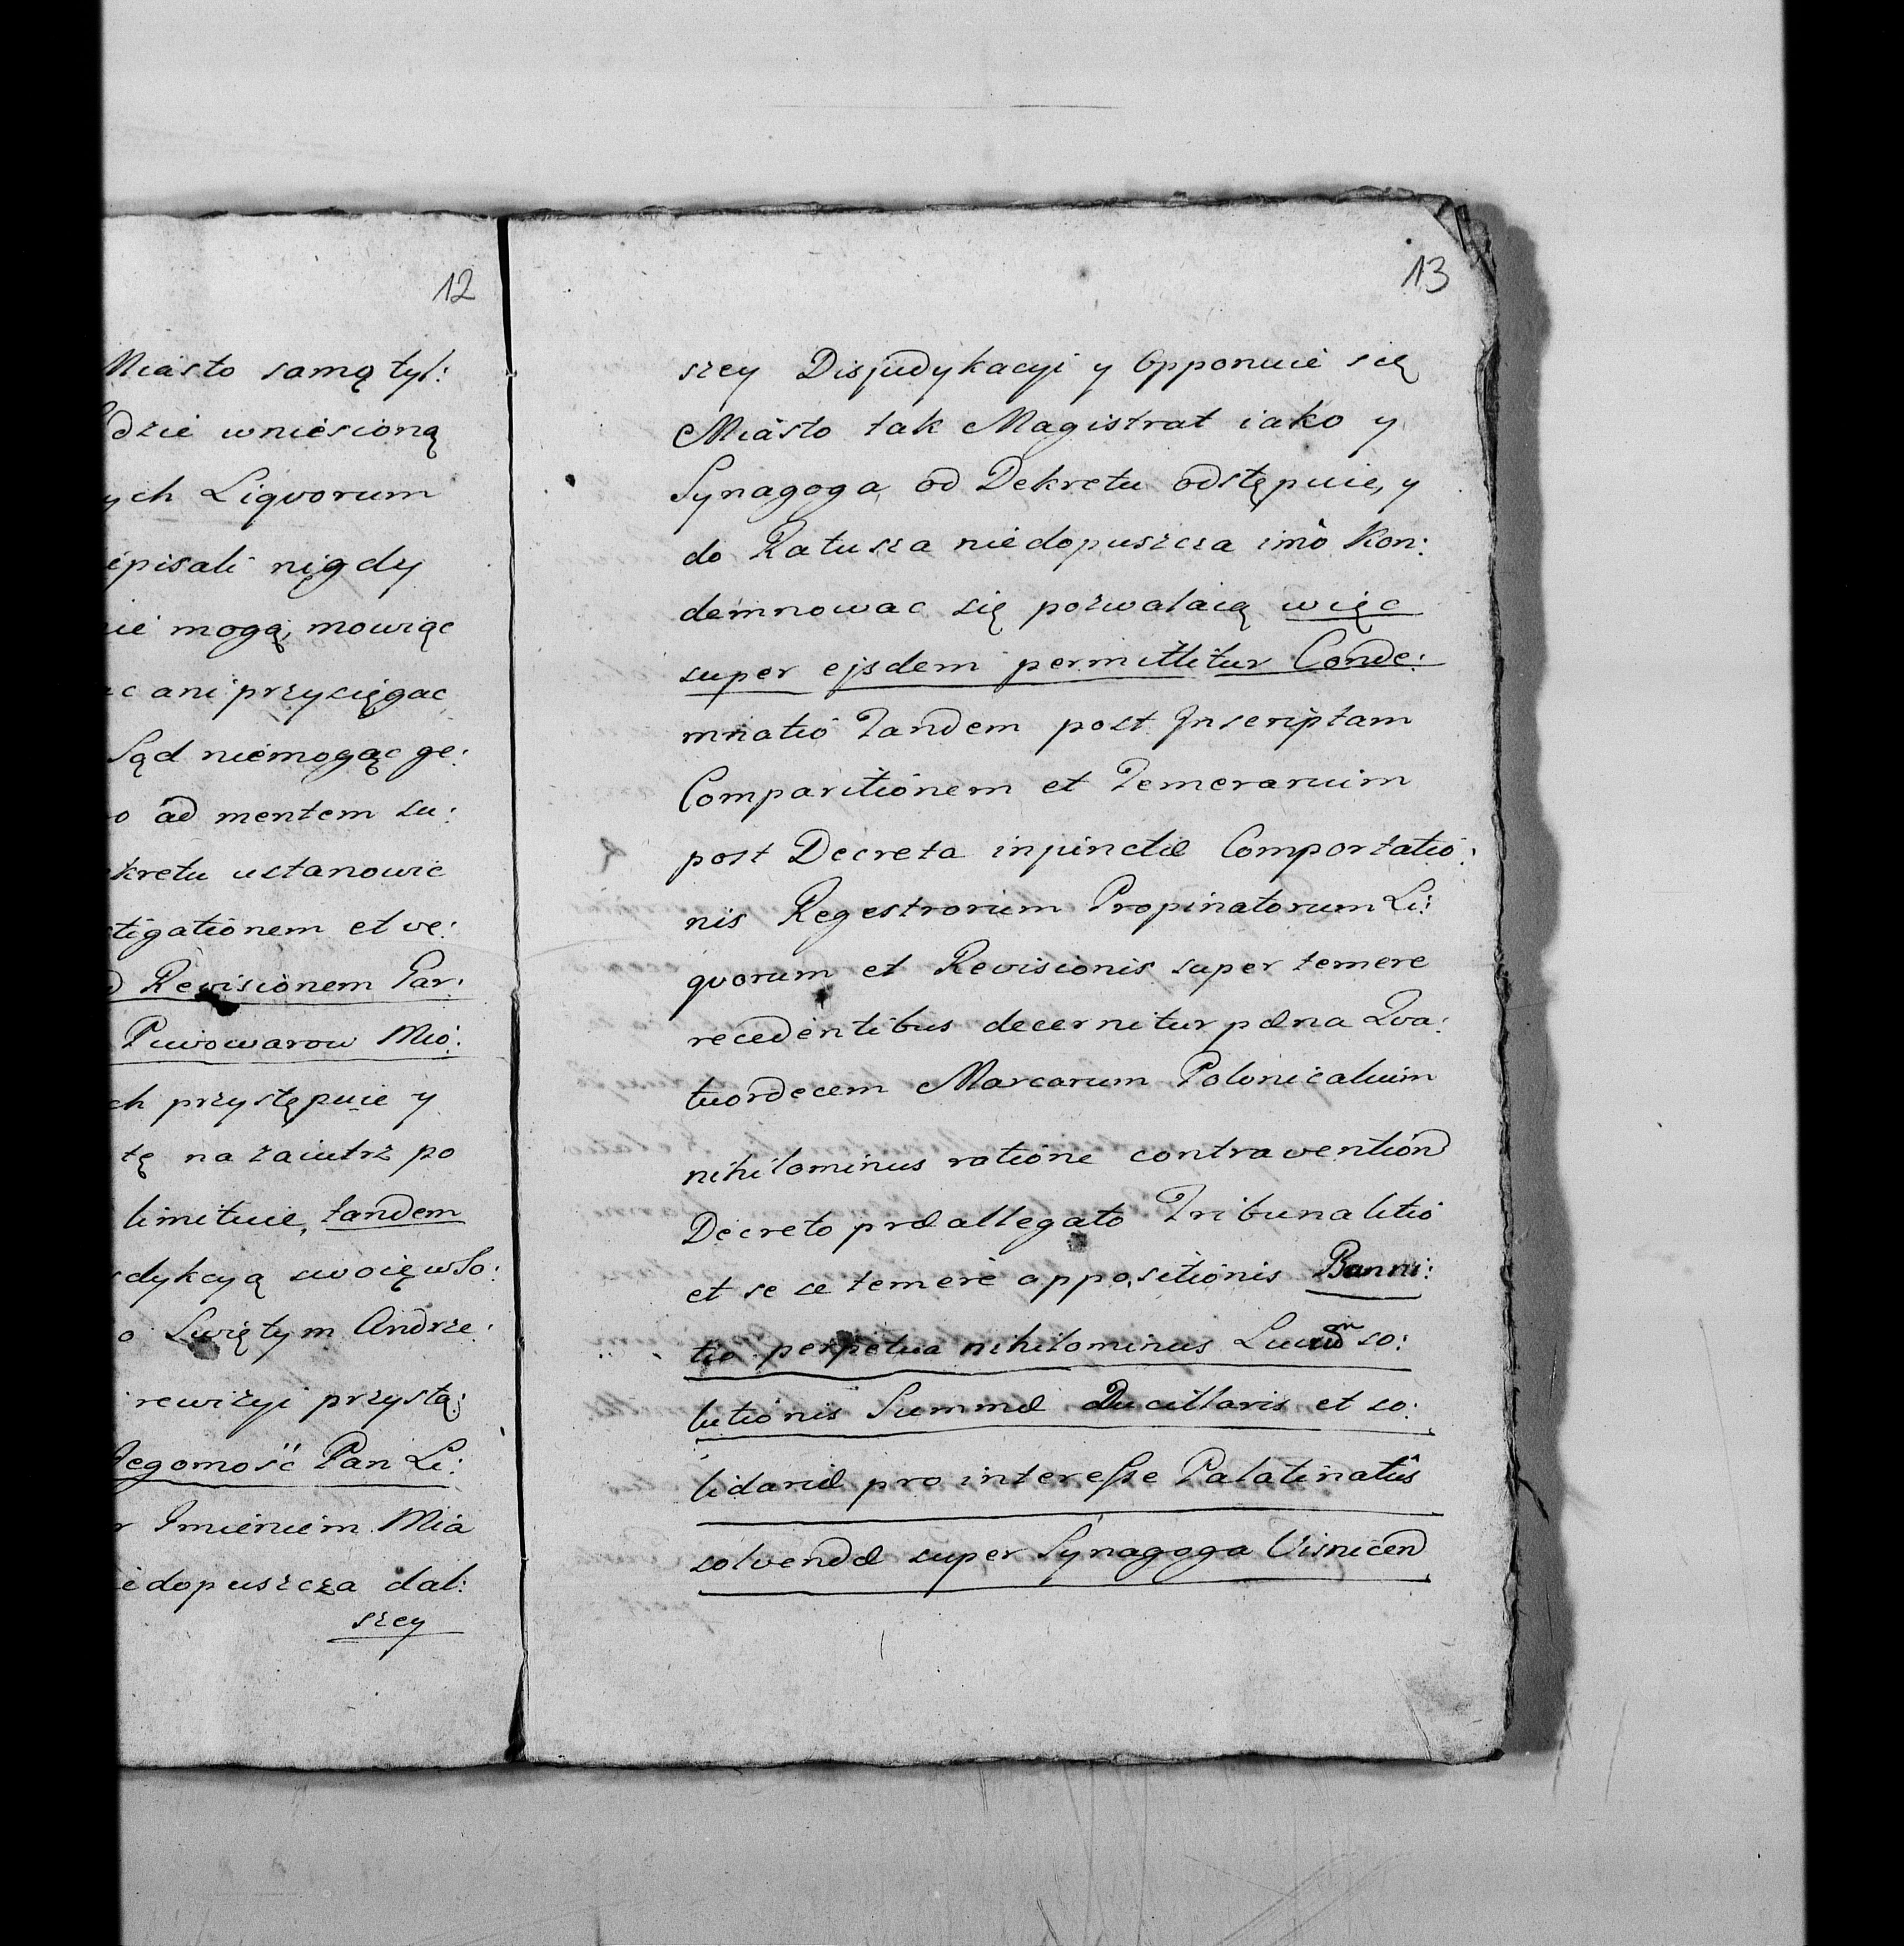 12
Miasto samą tyl:
dzie wniesioną
ych Liqvorum
ipisali nigdy
nie mogą, mowiąc
ac ani przysięgac
Sąd niemogąc ge:
o ad mentem su:
kretu ustanowic
stigationem et ve:
d Rewisionem Par:
Piwowarow Mio:
ch przystępuie y
tę na zaiutrz po
limituie, tandem
dykcyą swoię w So:
o Swiętym Andrze:
rewizyi przystą:
Jegomość Pan Li:
r Imieniem Mia
iedopuszcza dal:
szey
13
szey Disjudykacyi y Opponuie się
Miasto tak Magistrat iako y
Synagoga od Dekretu odstępuie, y
do Ratusza niedopuszcza imò Kon:
demnowac się pozwalaią więc
super ejsdem permittitur Conde:
mnatio Tandem post Inscriptam
Comparitionem et Temerarium
post Decreta injunctæ Comportatio:
nis Regestrorum Propinatorum Li:
qvorum et Revisionis super temere
recedentibus decernitur pæna Qva:
tuordecem Marcarum Polonicalium
nihilominus ratione contravention
Decreto præallegato Tribunalitio
et se se temere oppositionis Banni:
tio perpetua nihilominus so:
lutionis Summæ Ducillaris et so:
lidariæ pro interesse Palatinatûs
solvendæ super Synagoga Visnicen